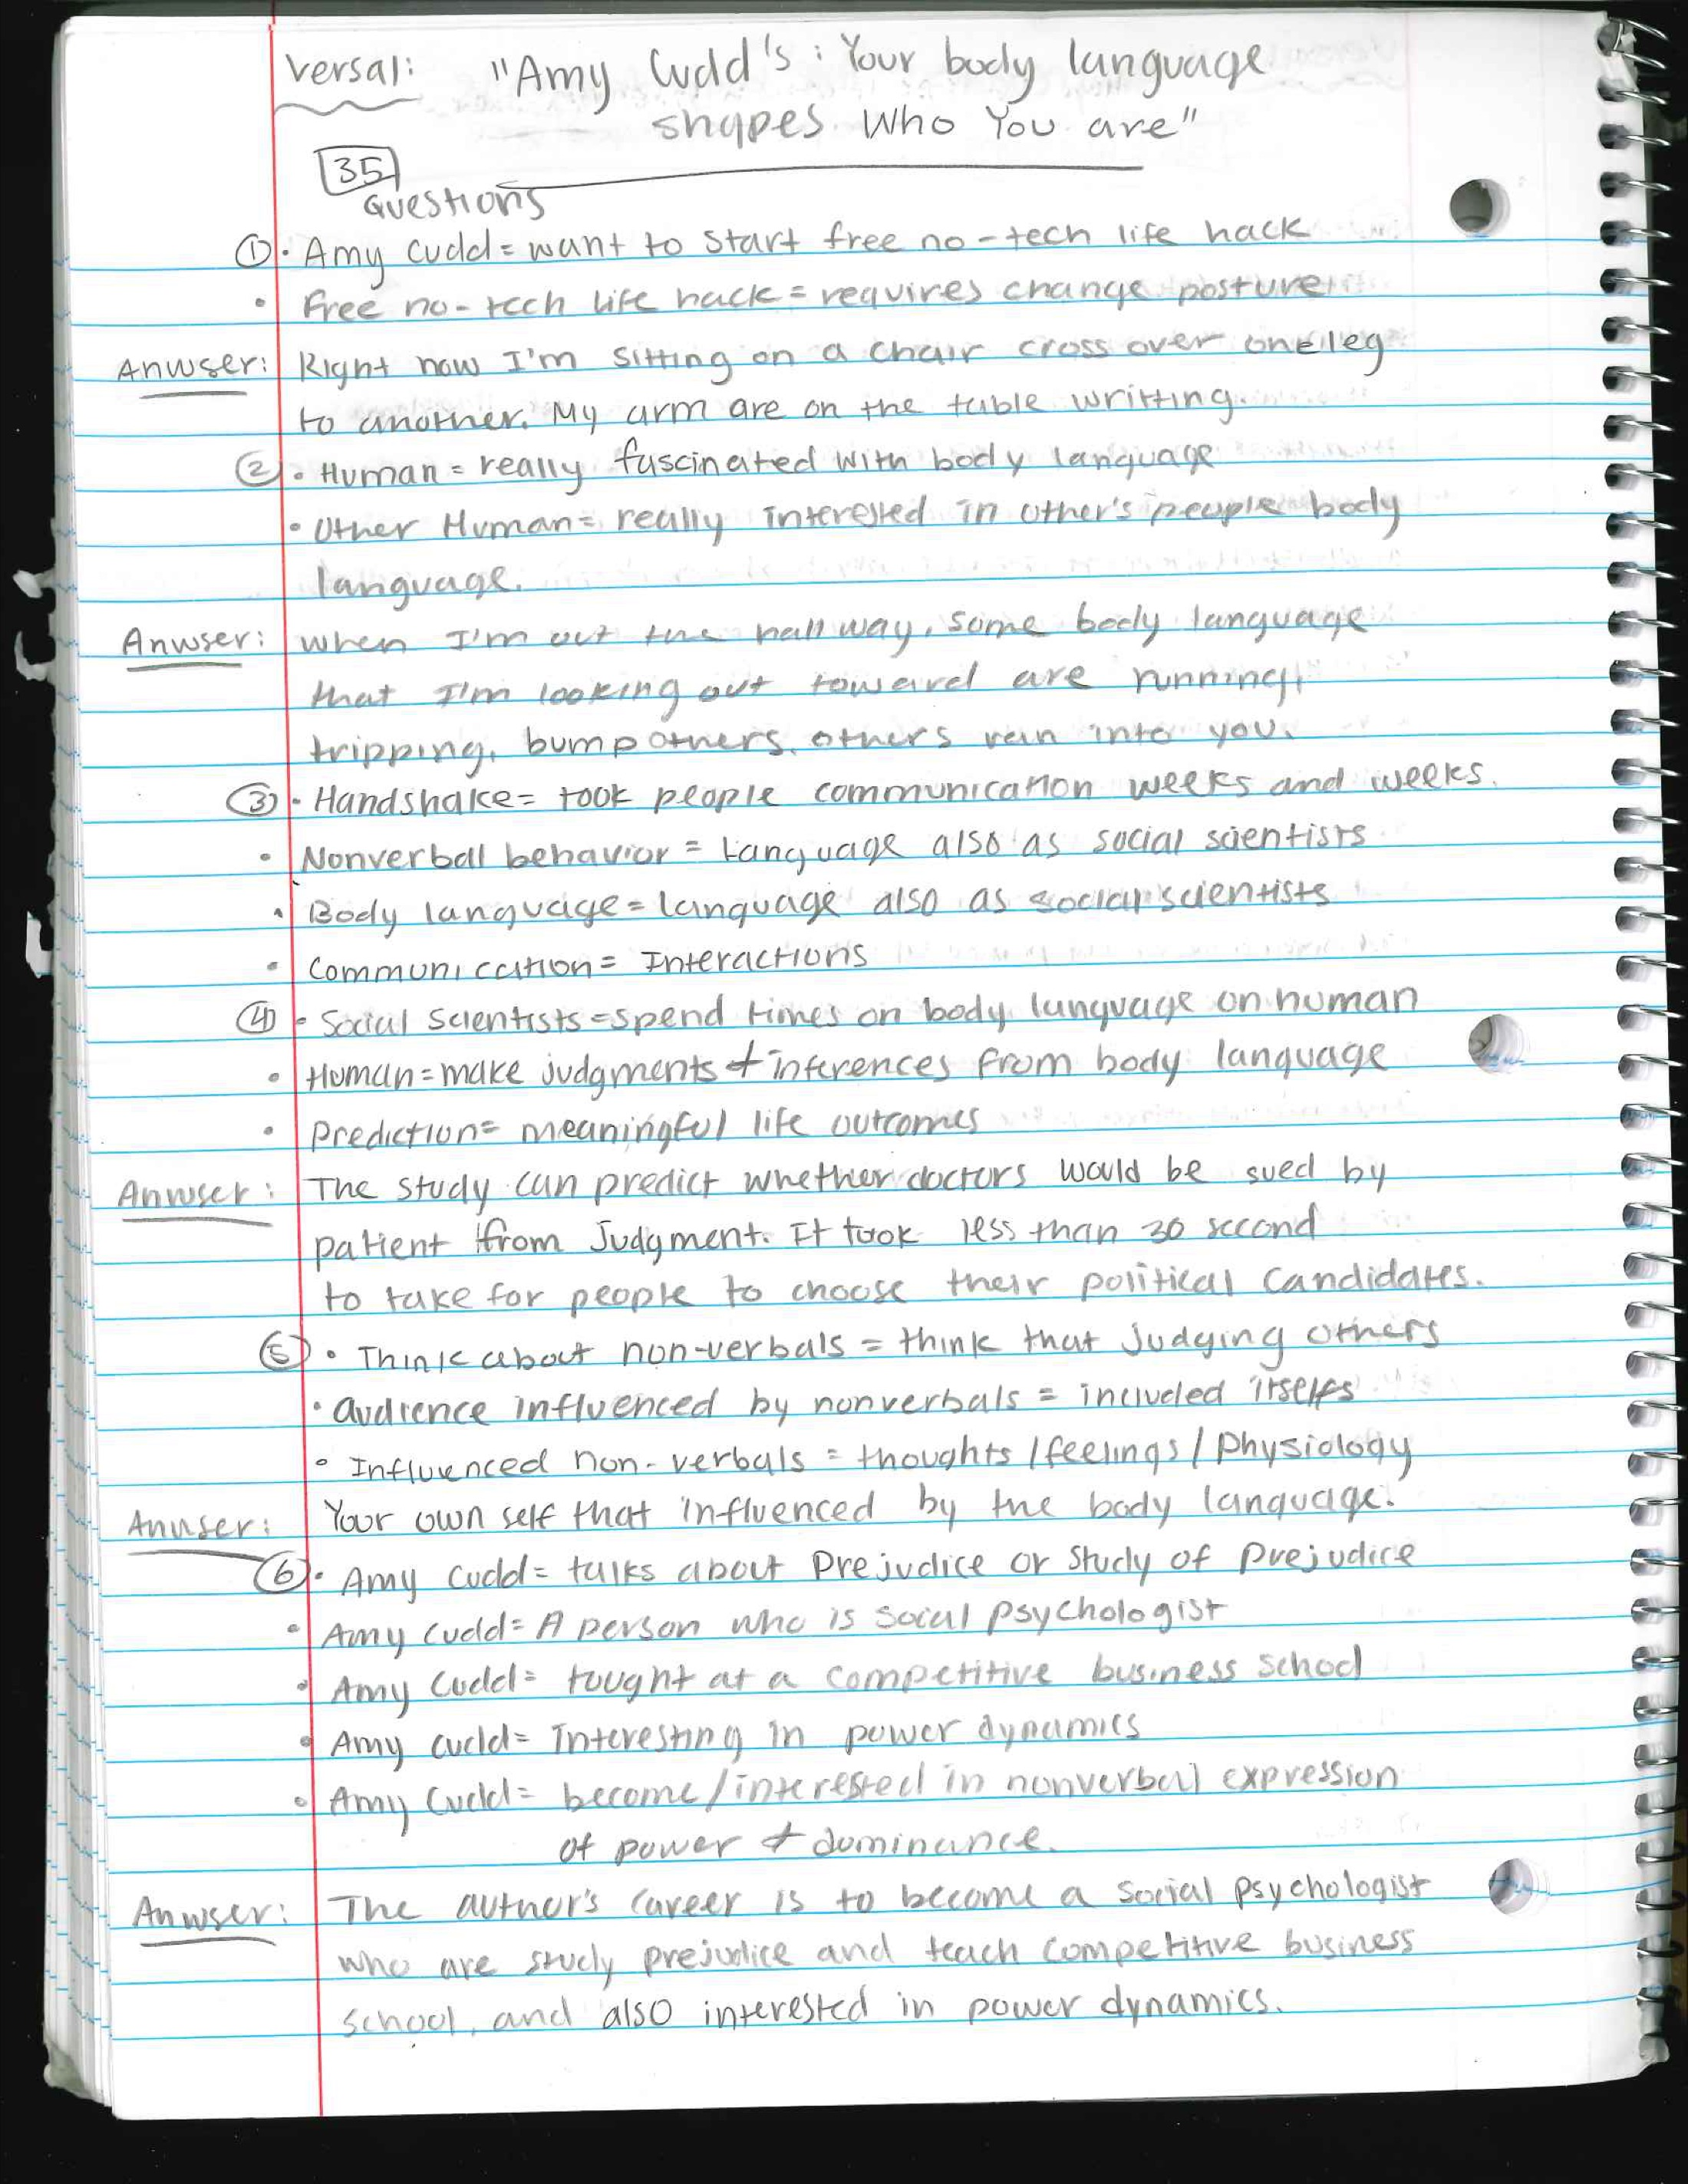 Versal: "Amy Cudd's: Your body language
shapes Who You are"
35
Questions
① • Amy Cudd = want to start free no-tech life hack
• Free no-tech life hack = requires change posture
Anwser: Right now I'm sitting on a chair cross over one leg
to another. My arm are on the table writting.
② • Human = really fascinated with body language
• Other Human = really interested in other's people body
language.
Anwser: When I'm out the hall way, some body language
that I'm looking out toward are running,
tripping, bump others, others ran into you.
③ • Handshake = took people communication weeks and weeks.
• Nonverbal behavior = Language also as social scientists
• Body language = language also as social scientists
• Communication = Interactions
④ • Social Scientists = spend times on body language on human
• Human = make judgments + inferences from body language
• Prediction = meaningful life outcomes
Anwser: The study can predict whether doctors would be sued by
patient from Judgment. It took less than 30 second
to take for people to choose their political candidates.
⑤ • Think about non-verbals = think that Judging others
• audience influenced by nonverbals = included itselfs
• Influenced non-verbals = thoughts / feelings / Physiology
Anwser: Your own self that influenced by the body language.
⑥ • Amy Cudd = talks about Prejudice or Study of Prejudice
• Amy Cudd = A person who is social psychologist
• Amy Cudd = tought at a competitive business school
• Amy Cudd = Interesting in power dynamics
• Amy Cudd = become/interested in nonverbal expression
of power + dominance.
Anwser: The author's career is to become a social psychologist
who are study prejudice and teach competitive business
school, and also interested in power dynamics.